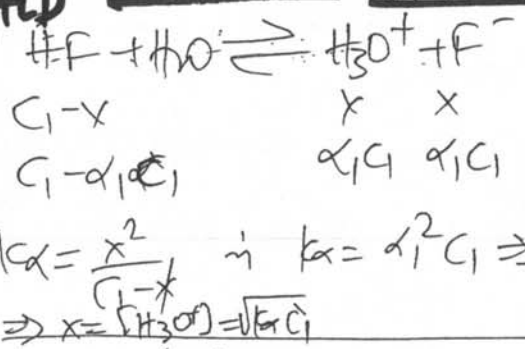 HF + H2O ⇌ H3O⁺ + F⁻
C₁-x x x
C₁-α₁C₁ α₁C₁ α₁C₁
Kα = x²/(C₁-x) ή Kα = α₁²C₁ ⇒
⇒ x = [H3O⁺] = √KαC₁